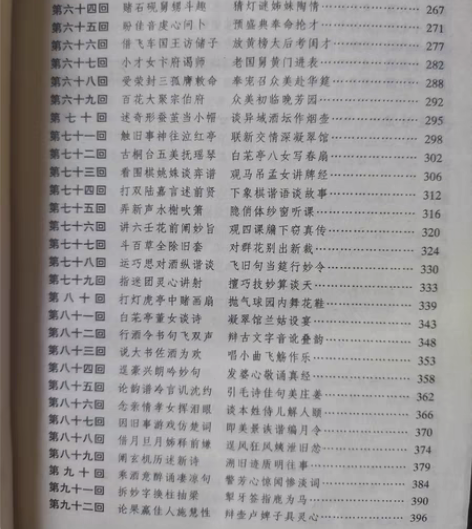 第六十四回 赌石砚舅甥斗趣 猜灯谜姊妹陶情……………267
第六十五回 盼佳音虔心问卜 预盛典奉命抡才……………271
第六十六回 借飞车国王访储子 放黄榜太后考闺才……………277
第六十七回 小才女卞府谒师 老国舅黄门进表……………282
第六十八回 受荣封三孤膺敕命 奉宠召众美赴华筵……………288
第六十九回 百花大聚宗伯府 众美初临晚芳园……………292
第七十回 述奇形蚕茧当小帽 谈异域酒坛作烟壶……………295
第七十一回 触旧事神往泣红亭 联新交情深凝翠馆……………298
第七十二回 古桐台五美抚瑶琴 白茏亭八女写春扇……………302
第七十三回 看围棋姚姝谈弈谱 观马吊孟女讲牌经……………306
第七十四回 打双陆嘉言述前贤 下象棋谐语谈故事……………312
第七十五回 弄新声水榭吹箫 隐俏体纱窗听课……………316
第七十六回 讲六壬花前阐妙旨 观四课牖下窃真传……………320
第七十七回 斗百草全除旧套 对群花别出新裁……………324
第七十八回 运巧思对酒纵谐谈 飞旧句当筵行妙令……………330
第七十九回 指迷团灵心讲射 擅巧技妙算谈天……………333
第八十回 打灯虎亭中赌画扇 抛气球园内舞花鞋……………339
第八十一回 白茏亭董女谈诗 凝翠馆兰姑设宴……………343
第八十二回 行酒令书句飞双声 辩古文字音讹叠韵……………348
第八十三回 说大书佐酒为欢 唱小曲飞觞作乐……………353
第八十四回 逞豪兴朗吟妙句 发婆心敬诵真经……………358
第八十五回 论韵谱冷言讥沈约 引毛诗佳句美庄姜……………362
第八十六回 念亲情孝女挥泪眼 谈本姓侍儿解人颐……………366
第八十七回 因旧事游戏仿楚词 即美景诙谐编月令……………370
第八十八回 借月旦月姊释前嫌 逞风狂风姨泄旧忿……………374
第八十九回 阐玄机历述新诗 溯旧迹质明往事……………379
第九十回 乘酒意醉诵凄凉句 警芳心惊闻惨淡词……………384
第九十一回 拆妙字换柱抽梁 掣牙签指鹿为马……………390
第九十二回 论果蠃佳人施慧性 辩壶卢婢子具灵心……………396